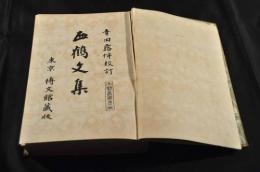 幸田露伴校訂
西鶴文集
東京 博文館蔵版